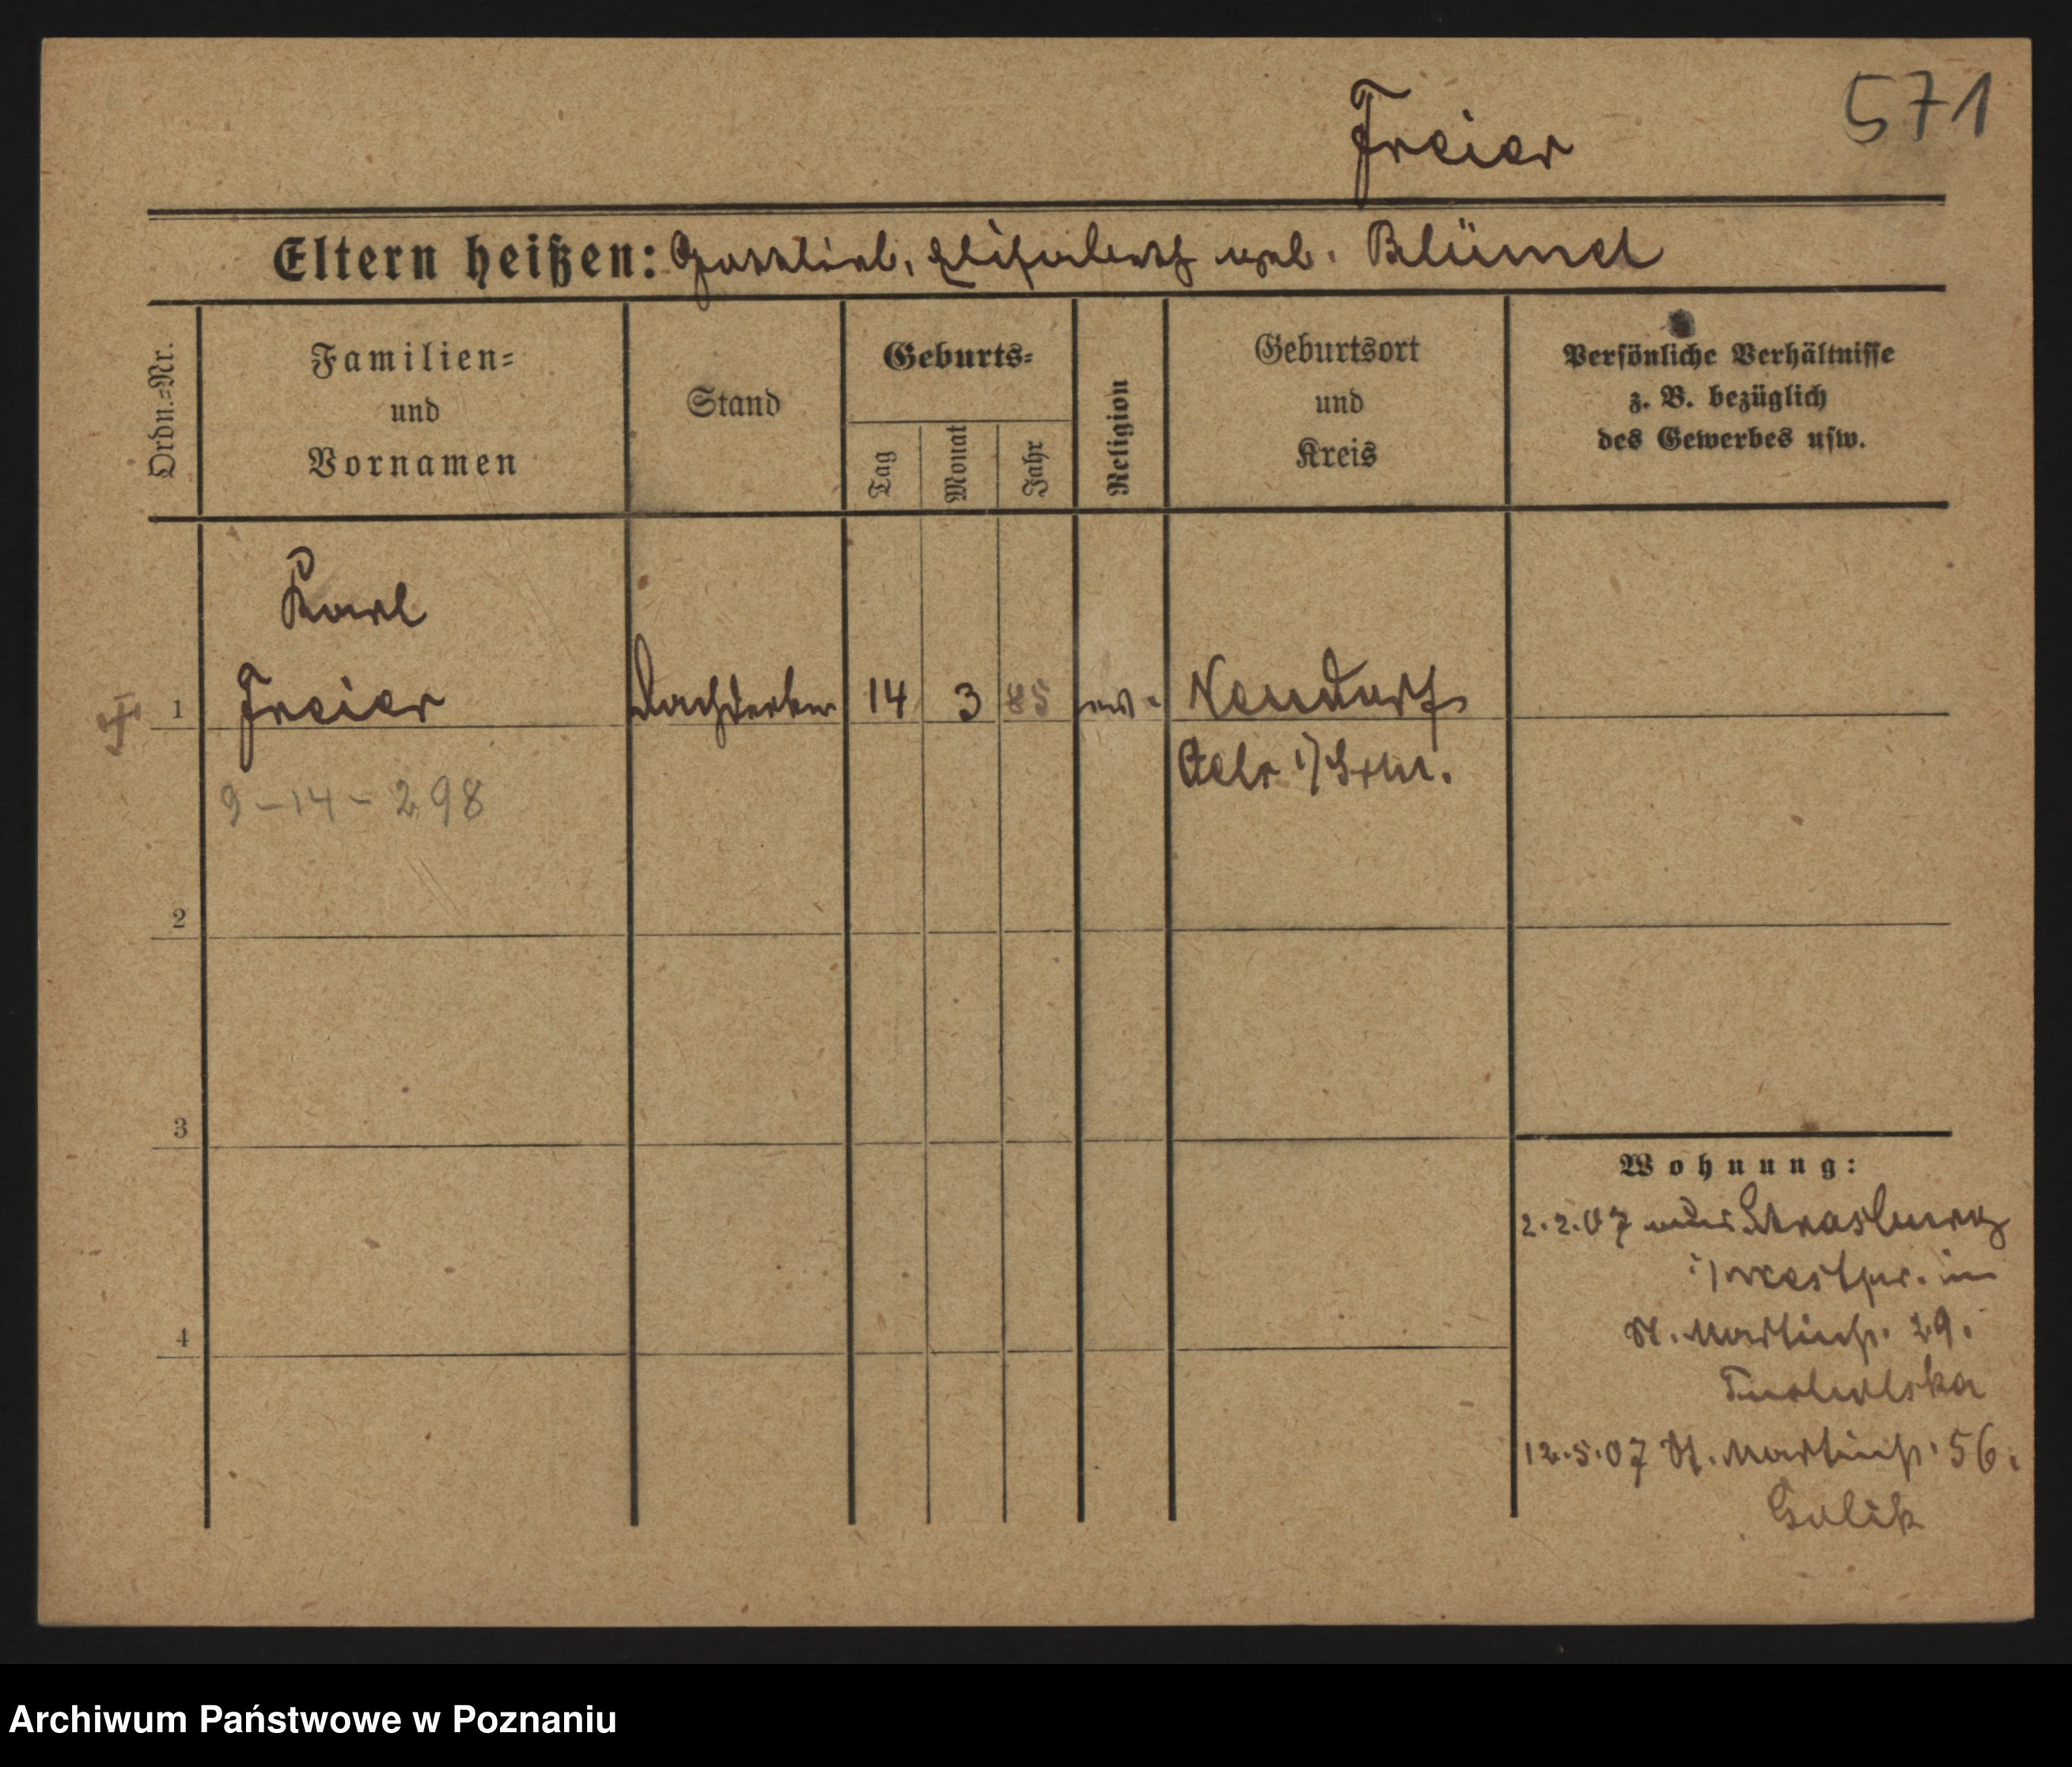 571
Freier
Eltern heißen: Gottlieb, Elisabeth geb. Blümel
Ordn.=Nr.
Familien=
und
Vornamen
Stand
Geburts=
Tag
Monat
Jahr
Religion
Geburtsort
und
Kreis
Persönliche Verhältnisse
z. B. bezüglich
des Gewerbes usw.
Karl
1 Freier Dachdecker 14 3 85 ev. Neudorf
Oels i/Schl.
9-14-298
2
3
4
Wohnung:
2.2.07 aus Strasburg
i/Westpr. in
St. Martinstr. 29.
12.5.07 St. Martinstr. 56.
Golik
Archiwum Państwowe w Poznaniu